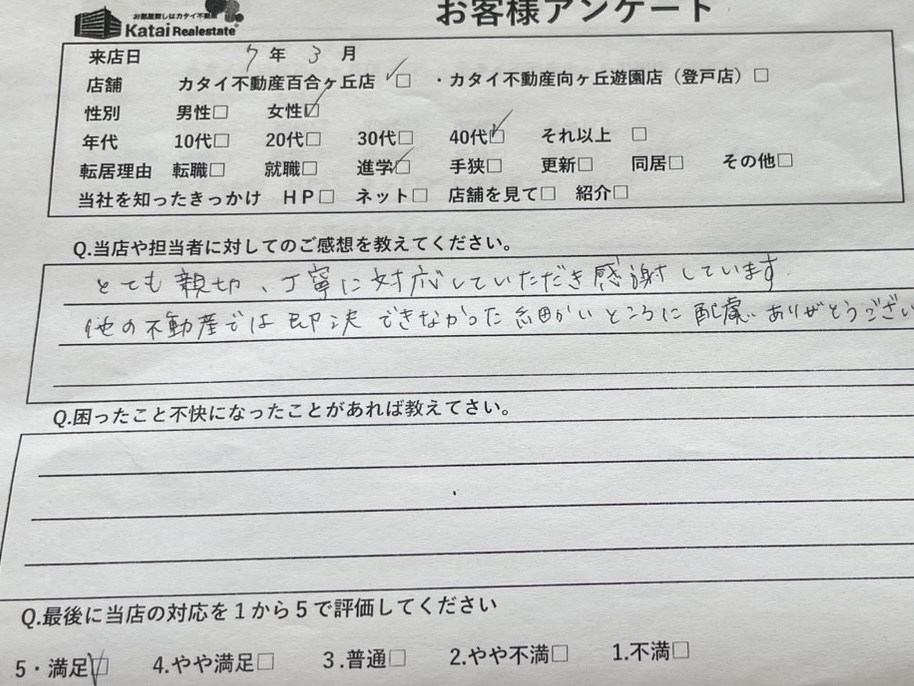 お部屋探しはカタイ不動産
Katai Realestate
お客様アンケート
来店日 7年 3月
店舗 カタイ不動産百合ヶ丘店 ✓□ ・カタイ不動産向ヶ丘遊園店（登戸店）□
性別 男性□ 女性☑
年代 10代□ 20代□ 30代□ 40代☑ それ以上 □
転居理由 転職□ 就職□ 進学☑ 手狭□ 更新□ 同居□ その他□
当社を知ったきっかけ HP□ ネット□ 店舗を見て□ 紹介□
Q.当店や担当者に対してのご感想を教えてください。
とても親切、丁寧に対応していただき感謝しています
他の不動産では即決できなかった細かいところに配慮、ありがとうござい
Q.困ったこと不快になったことがあれば教えてさい。
Q.最後に当店の対応を1から5で評価してください
5・満足☑ 4.やや満足□ 3.普通□ 2.やや不満□ 1.不満□